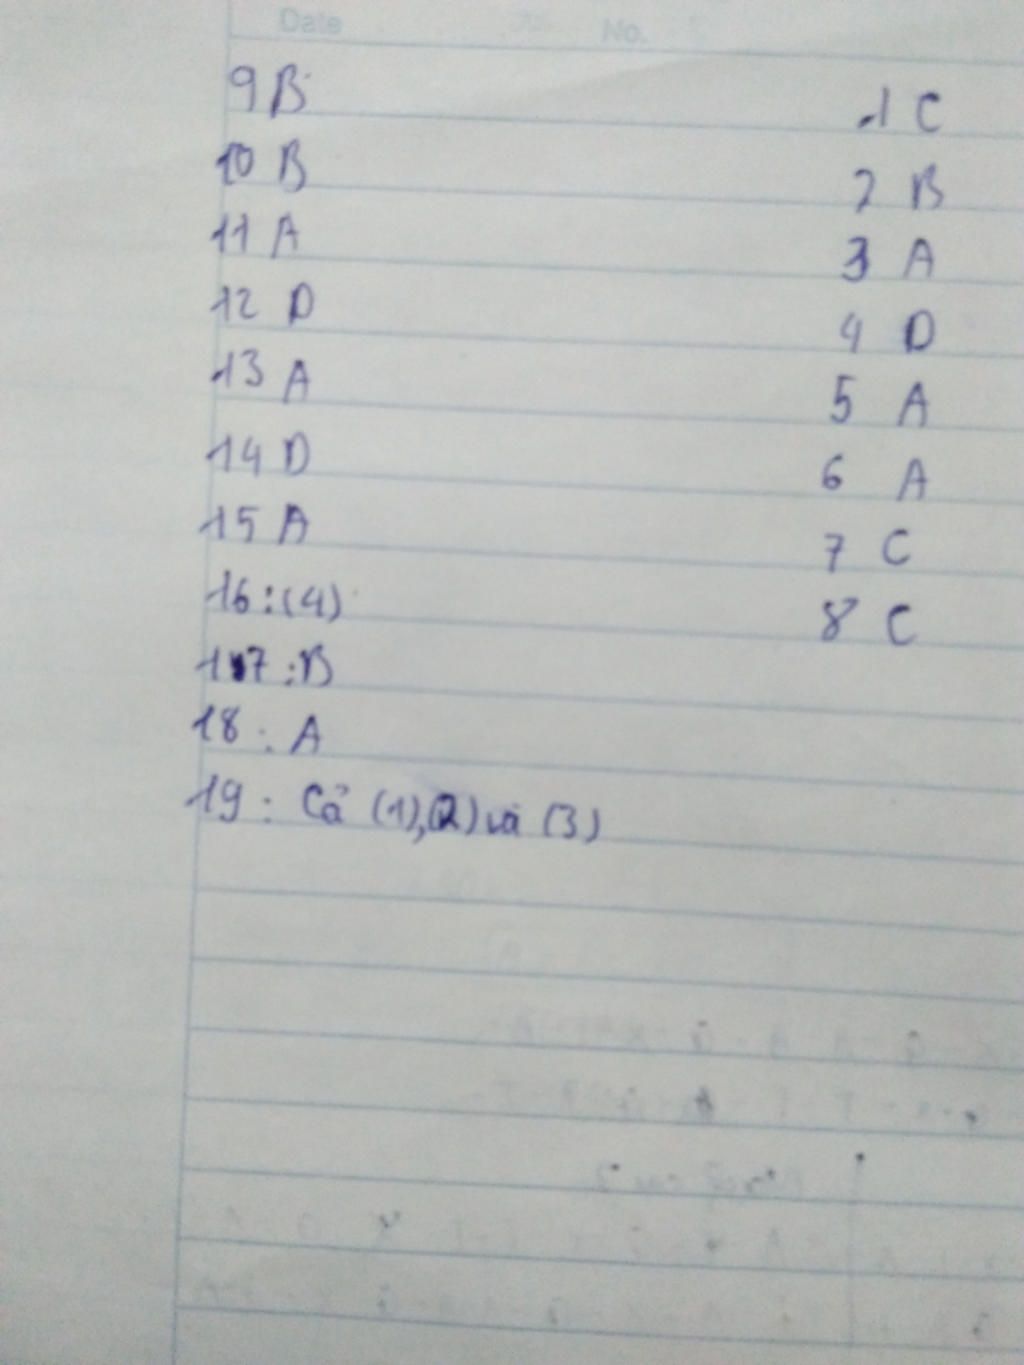 Date No.
9 B
10 B
11 A
12 D
13 A
14 D
15 A
16 : (4)
17 : B
18 : A
19 : Cả (1), (2) và (3)
1 C
2 B
3 A
4 D
5 A
6 A
7 C
8 C